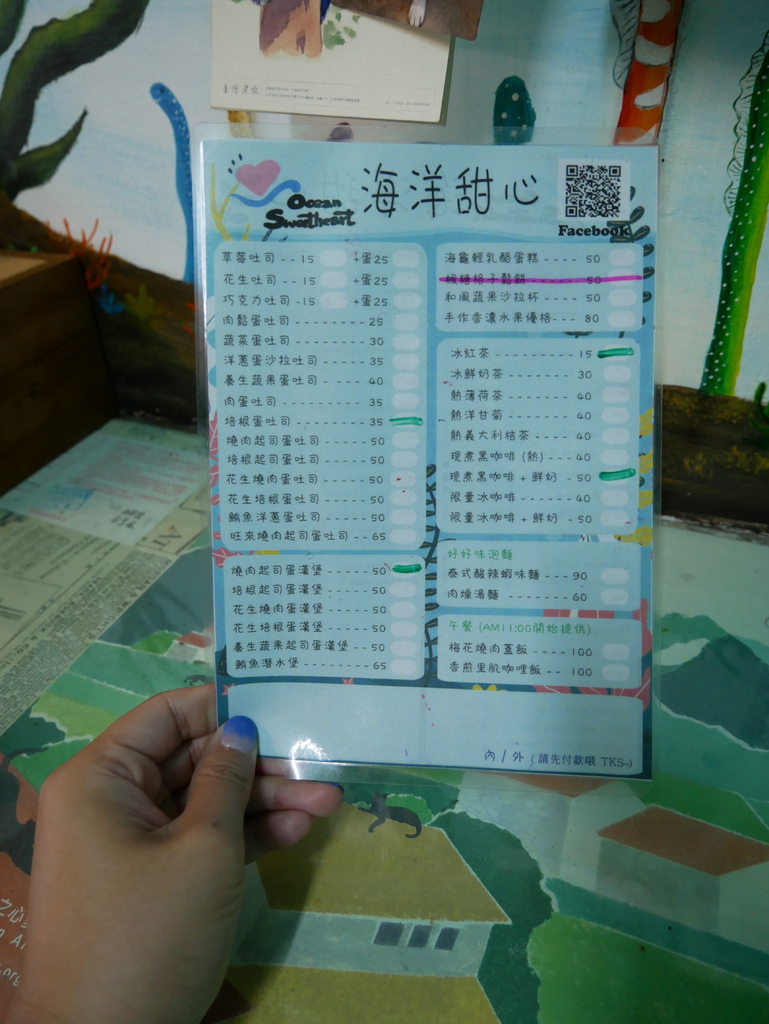 臺灣黑熊
Ocean
Sweetheart
海洋甜心
Facebook
草莓吐司 -- 15 +蛋25
花生吐司 -- 15 +蛋25
巧克力吐司 -15 +蛋25
肉鬆蛋吐司 -------- 25
蔬菜蛋吐司 -------- 30
洋蔥蛋沙拉吐司 ---- 35
養生蔬果蛋吐司 ---- 40
肉蛋吐司 --------- 35
培根蛋吐司 -------- 35
燒肉起司蛋吐司 ---- 50
培根起司蛋吐司 ---- 50
花生燒肉蛋吐司 ---- 50
花生培根蛋吐司 ---- 50
鮪魚洋蔥蛋吐司 ---- 50
旺來燒肉起司蛋吐司 -- 65
燒肉起司蛋漢堡 ---- 50
培根起司蛋漢堡 ---- 50
花生燒肉蛋漢堡 ---- 50
花生培根蛋漢堡 ---- 50
養生蔬果起司蛋漢堡 -- 50
鮪魚潛水堡 -------- 65
海龜輕乳酪蛋糕 ---- 50
楓糖格子鬆餅 ------ 50
和風蔬果沙拉杯 ---- 50
手作香濃水果優格 --- 80
冰紅茶 ---------- 15
冰鮮奶茶 --------- 30
熱薄荷茶 --------- 40
熱洋甘菊 --------- 40
熱義大利桔茶 ----- 40
現煮黑咖啡 (熱) ---- 40
現煮黑咖啡 + 鮮奶 - 50
限量冰咖啡 ------- 40
限量冰咖啡 + 鮮奶 - 50
好好味泡麵
泰式酸辣蝦味麵 --- 90
肉燥湯麵 -------- 60
午餐 (AM11:00開始提供)
梅花燒肉蓋飯 ---- 100
香煎里肌咖哩飯 -- 100
內 / 外 (請先付款哦 TKS~)